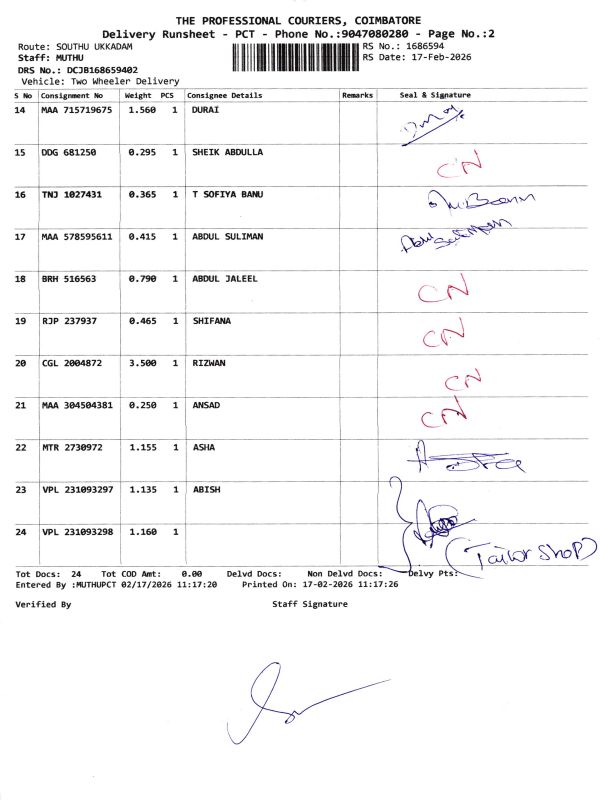 THE PROFESSIONAL COURIERS, COIMBATORE
Delivery Runsheet - PCT - Phone No.:9047080280 - Page No.:2
Route: SOUTHU UKKADAM RS No.: 1686594
Staff: MUTHU RS Date: 17-Feb-2026
DRS No.: DCJB168659402
Vehicle: Two Wheeler Delivery
S No Consignment No Weight PCS Consignee Details Remarks Seal & Signature
14 MAA 715719675 1.560 1 DURAI
15 DDG 681250 0.295 1 SHEIK ABDULLA CN
16 TNJ 1027431 0.365 1 T SOFIYA BANU
17 MAA 578595611 0.415 1 ABDUL SULIMAN
18 BRH 516563 0.790 1 ABDUL JALEEL CN
19 RJP 237937 0.465 1 SHIFANA CN
20 CGL 2004872 3.500 1 RIZWAN CN
21 MAA 304504381 0.250 1 ANSAD CN
22 MTR 2730972 1.155 1 ASHA
23 VPL 231093297 1.135 1 ABISH
24 VPL 231093298 1.160 1 (Tailor Shop)
Tot Docs: 24 Tot COD Amt: 0.00 Delvd Docs: Non Delvd Docs: Delvy Pts:
Entered By :MUTHUPCT 02/17/2026 11:17:20 Printed On: 17-02-2026 11:17:26
Verified By Staff Signature